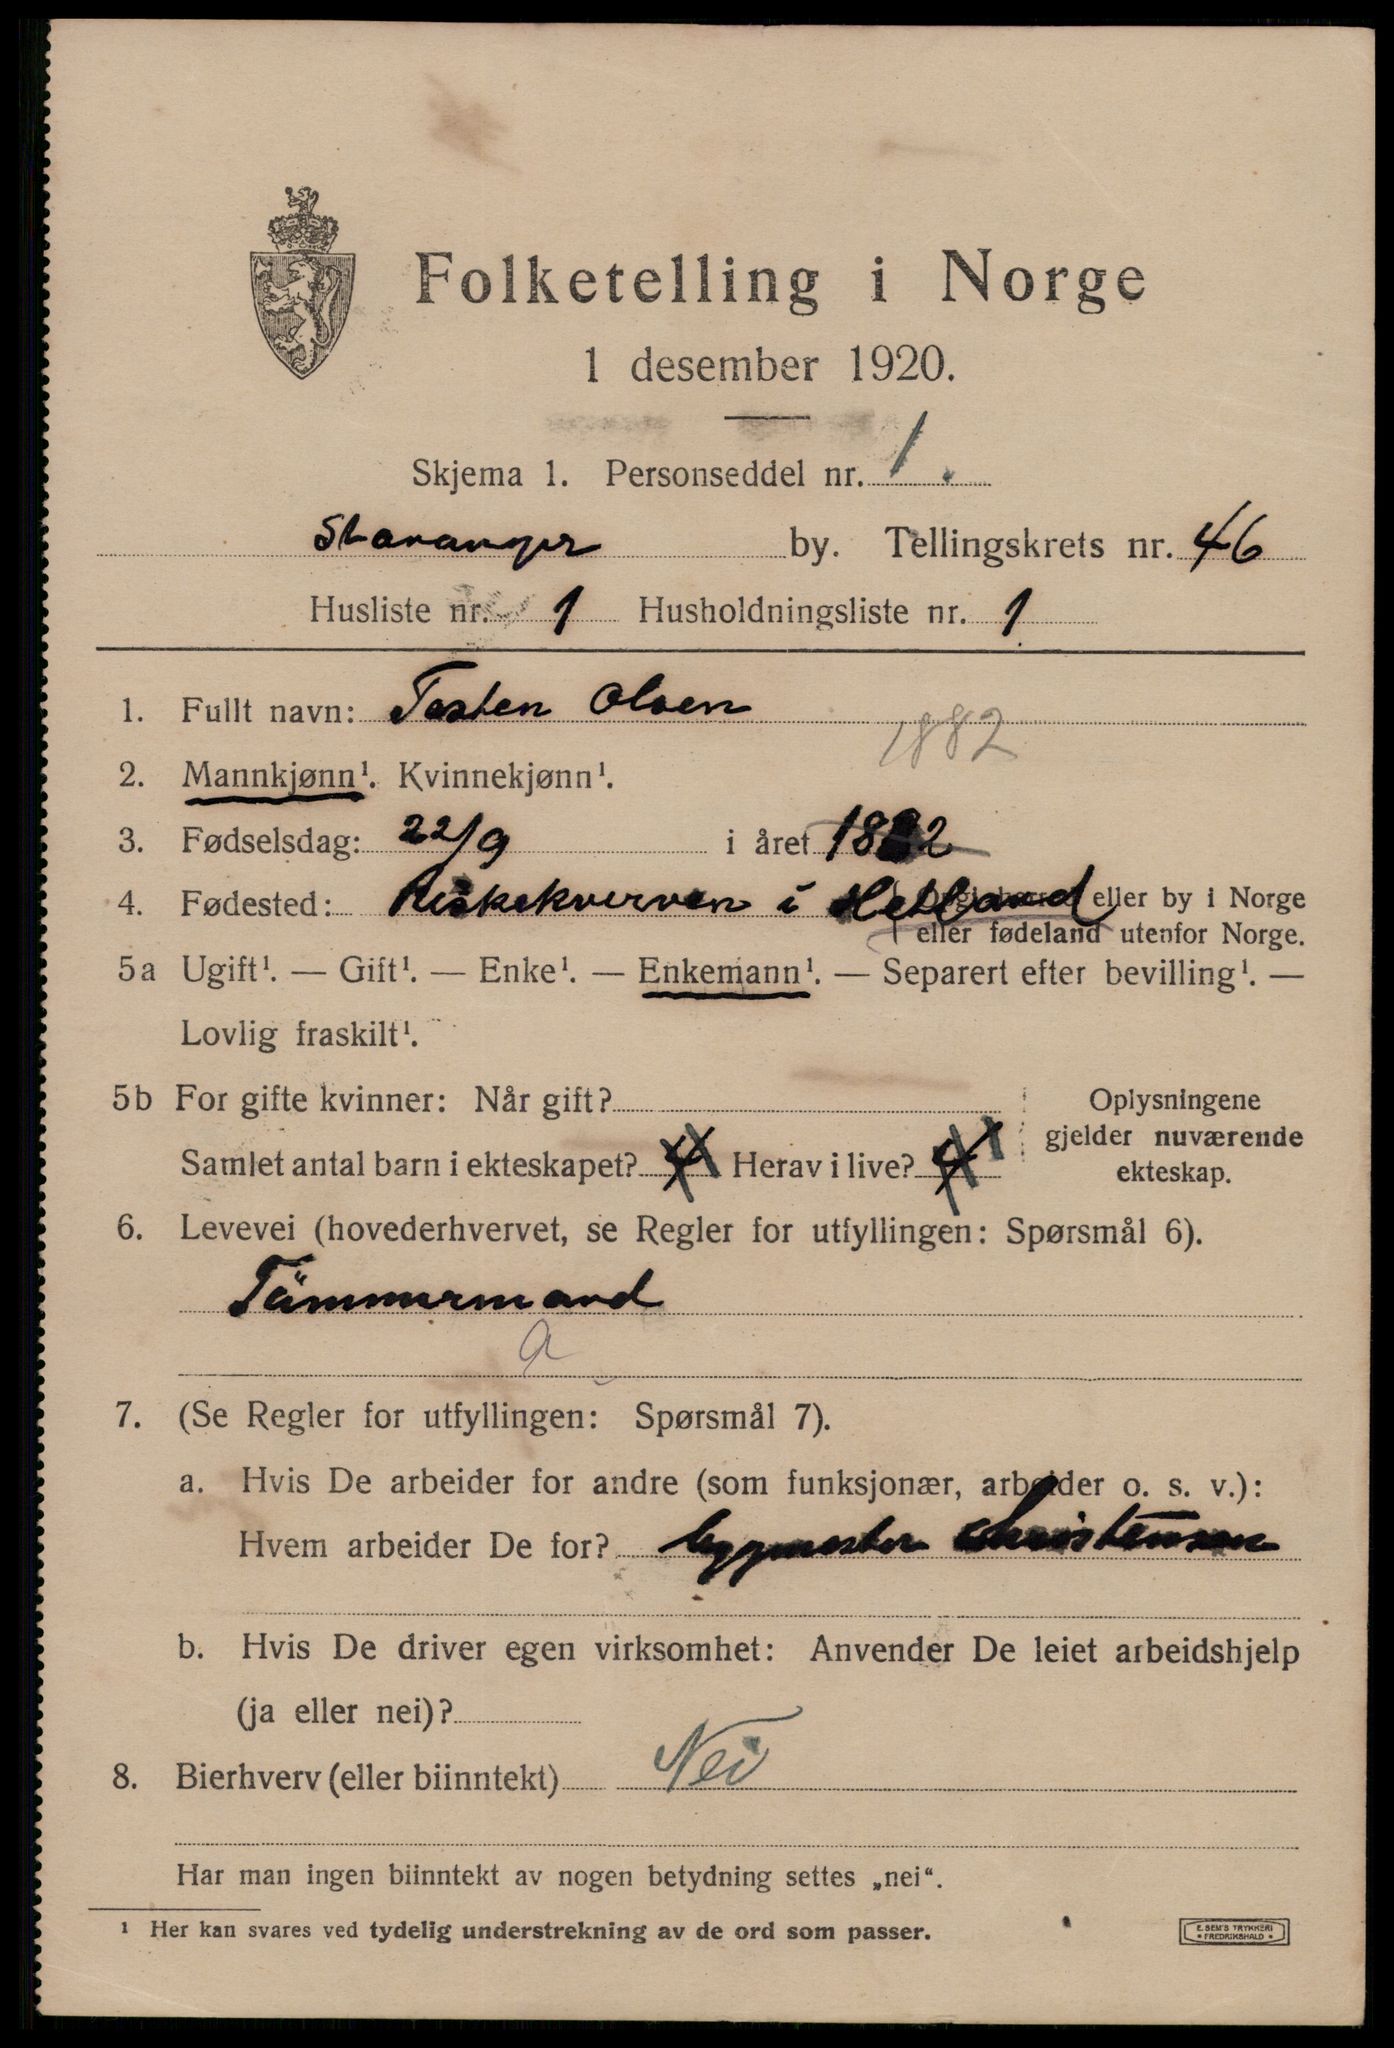 Folketelling i Norge
1 desember 1920.
Skjema 1. Personseddel nr. 1.
Stavanger by. Tellingskrets nr. 46
Husliste nr. 1 Husholdningsliste nr. 1
1. Fullt navn: Tosten Olsen
1882
2. Mannkjønn¹. Kvinnekjønn¹.
3. Fødselsdag: 22/9 i året 1882
4. Fødested: Riskekverven i Hetland eller by i Norge
eller fødeland utenfor Norge.
5a Ugift¹. — Gift¹. — Enke¹. — Enkemann¹. — Separert efter bevilling¹. —
Lovlig fraskilt¹.
5b For gifte kvinner: Når gift?
Samlet antal barn i ekteskapet? 4 Herav i live? 4
Oplysningene
gjelder nuværende
ekteskap.
6. Levevei (hovederhvervet, se Regler for utfyllingen: Spørsmål 6).
Tömmermand
a
7. (Se Regler for utfyllingen: Spørsmål 7).
a. Hvis De arbeider for andre (som funksjonær, arbeider o. s. v.):
Hvem arbeider De for? byggmester Christensen
b. Hvis De driver egen virksomhet: Anvender De leiet arbeidshjelp
(ja eller nei)?
8. Bierhverv (eller biinntekt) Nei
Har man ingen biinntekt av nogen betydning settes „nei“.
¹ Her kan svares ved tydelig understrekning av de ord som passer.
E. SEM'S TRYKKERI
* FREDRIKSHALD *